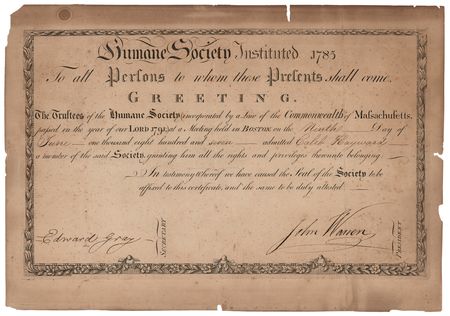 Humane Society Instituted 1785
To all Persons to whom these Presents shall come,
GREETING.
The Trustees of the Humane Society (incorporated by a Law of the Commonwealth of Massachusetts,
passed in the year of our LORD 1791,) at a Meeting held in BOSTON on the Ninth Day of
June one thousand eight hundred and seven admitted Caleb Hayward
a member of the said Society, granting him all the rights and privileges thereunto belonging.
In testimony whereof we have caused the Seal of the Society to be
affixed to this certificate, and the same to be duly attested.
Edward Gray
SECRETARY
John Warren
PRESIDENT